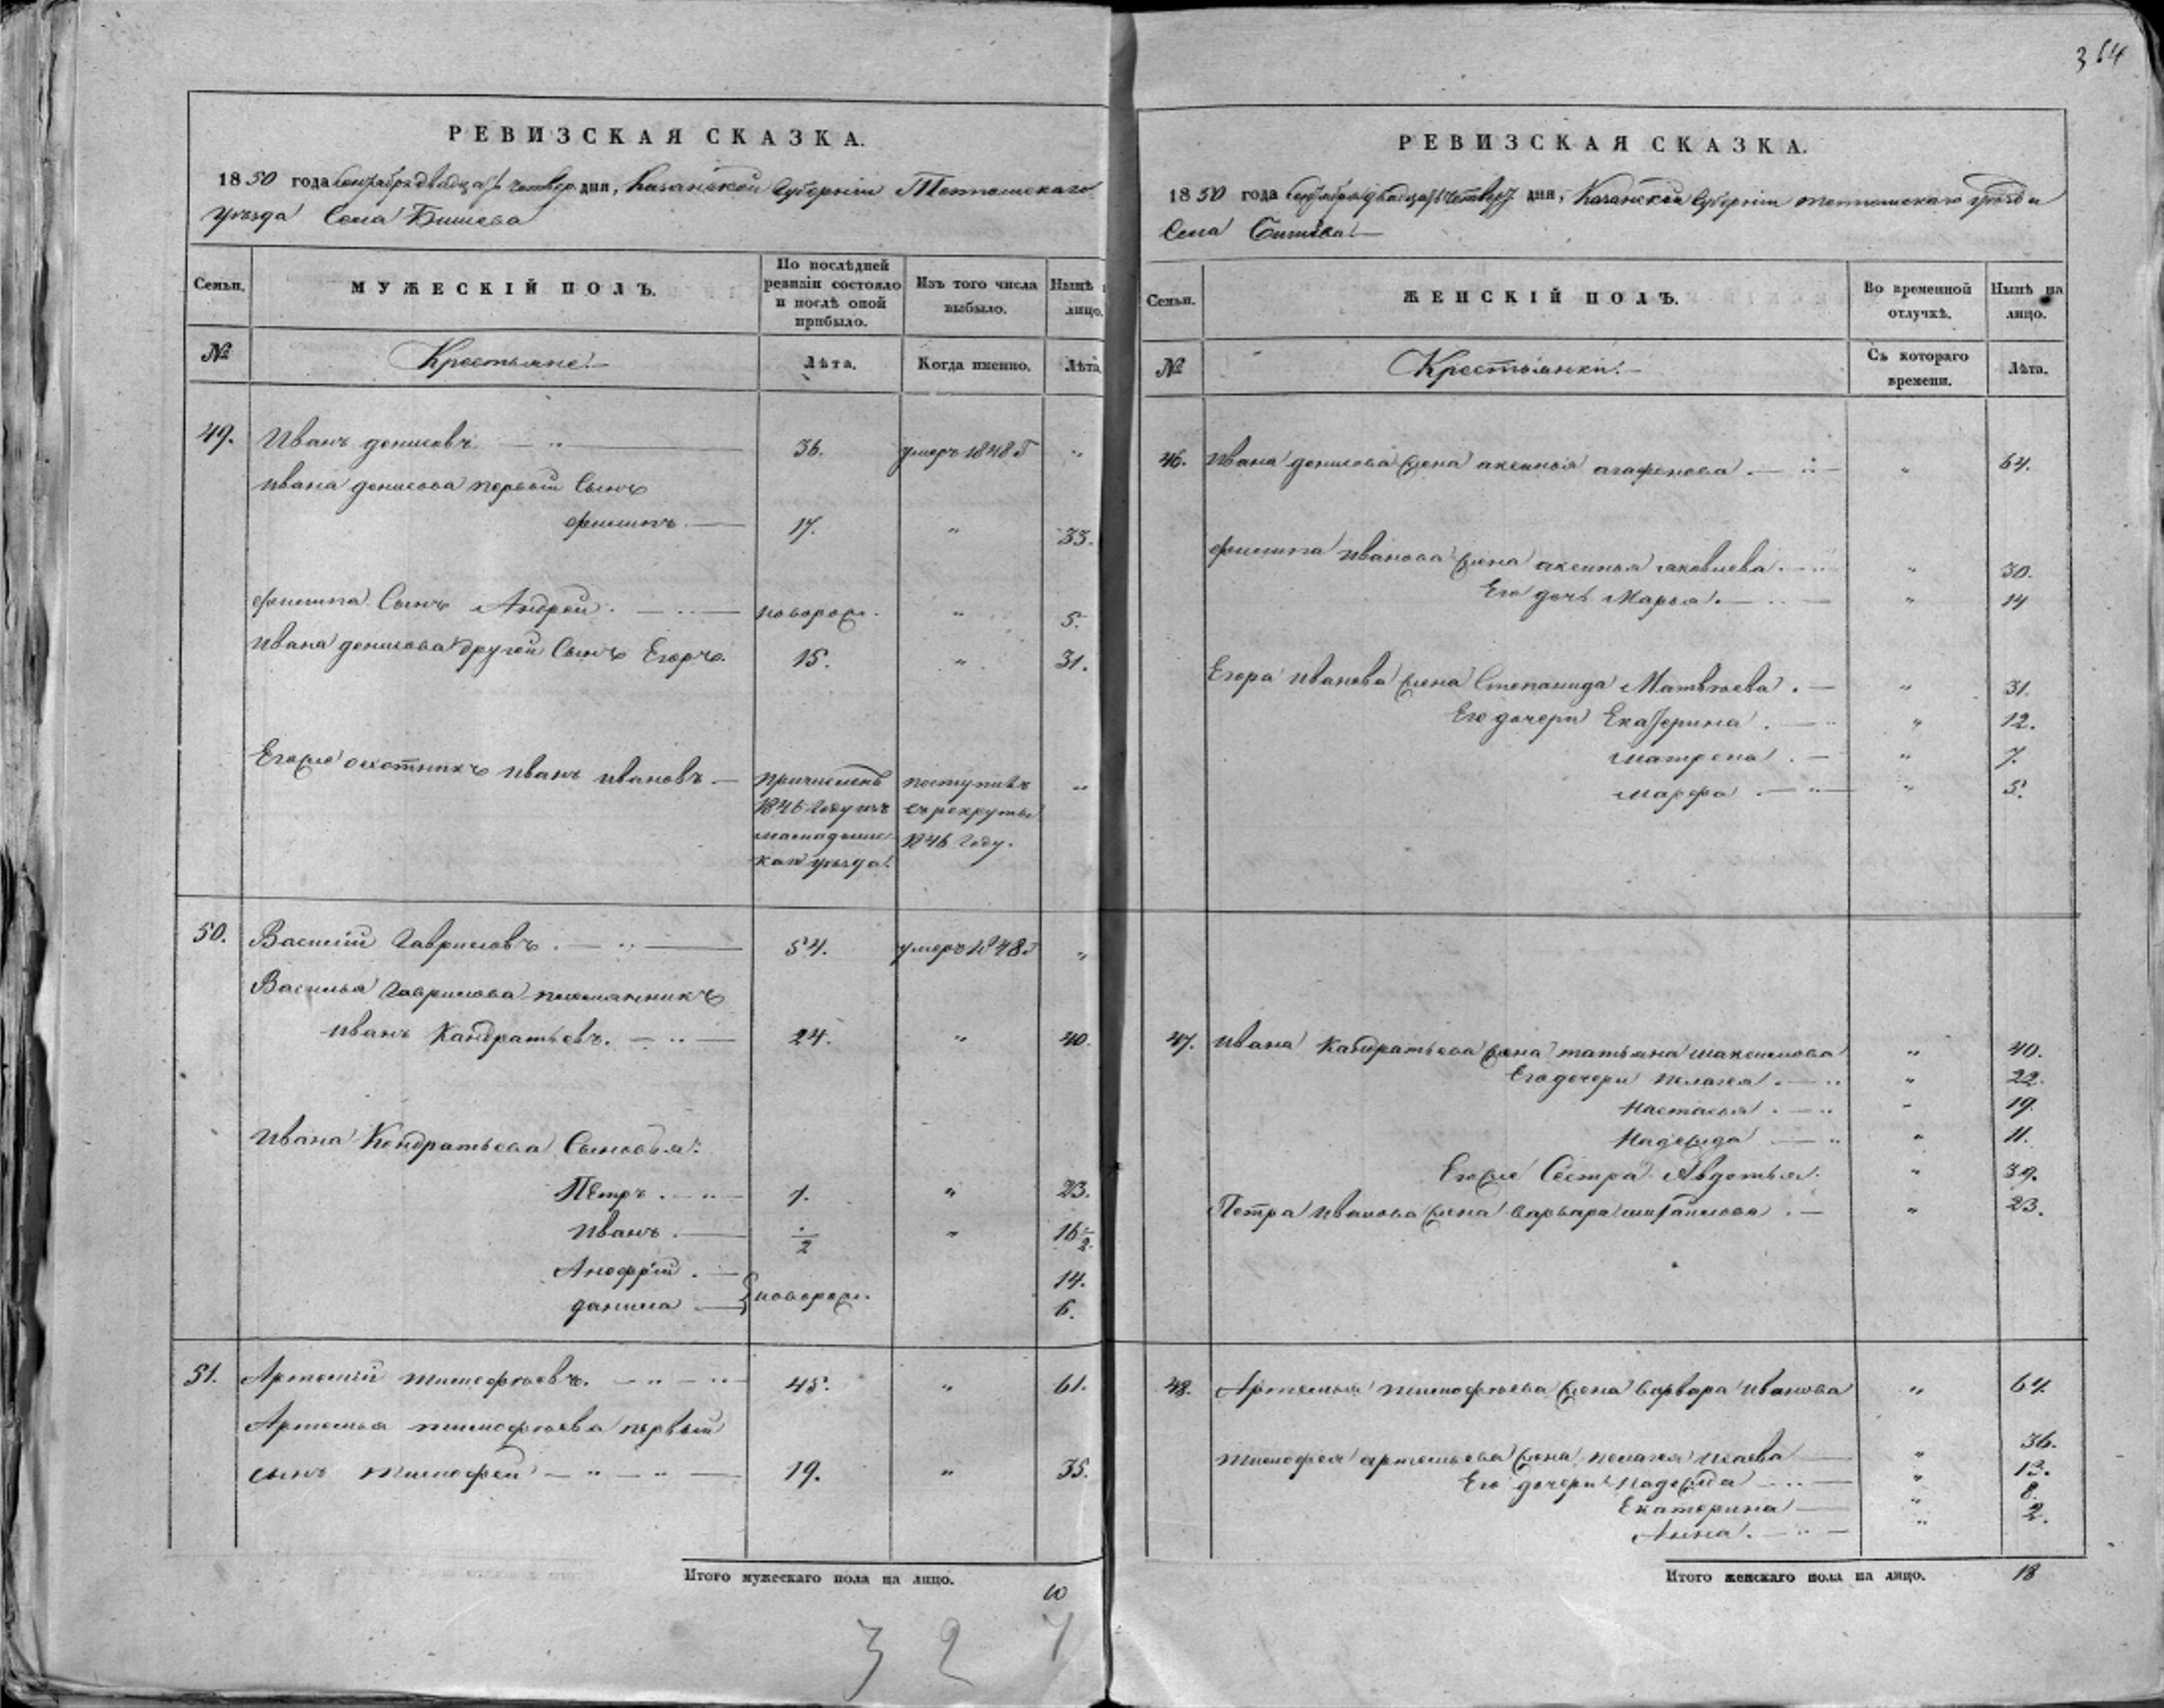 364
РЕВИЗСКАЯ СКАЗКА.
1850 года Сентября двадцать четвер дня, Казанской Губернiи Тетюшскаго
уѣзда Села Бишева
Семьи.
МУЖЕСКIЙ ПОЛЪ.
По послѣдней ревизiи состояло и послѣ оной прибыло.
Изъ того числа выбыло.
Нынѣ лицо.
№
Крестьяне.
Лѣта.
Когда именно.
Лѣта.
49. Иванъ денисовъ 36. умеръ 1848 Г "
Ивана денисова первый Сынъ
филипъ 17. " 33.
филипа Сынъ Андрей новорож. " 5.
Ивана денисова другой Сынъ Егоръ. 15. " 31.
Егоже охотникъ Иванъ Ивановъ причисленъ поступивъ "
1846 Году изъ въ рекруты
мамадышс 1846 Году.
каго уѣзда.
50. Василiй Гавриловъ 54. умеръ 1848 Г "
Василья Гаврилова племянникъ
Иванъ Кандратьевъ. 24. " 40.
Ивана Кондратьева Сыновья:
Петръ 1. " 23.
Иванъ ½ " 16½
Анофрiй 14.
новорож.
данила 6.
51. Артемiй тимофѣевъ. 45. " 61.
Артемья тимофѣева первый
сынъ тимофей 19. " 35.
Итого мужескаго пола на лицо. 10
3 2 7
РЕВИЗСКАЯ СКАЗКА.
1850 года Сентября двадцать четвер дня, Казанской Губернiи тетюшскаго уѣзда
Села Бишева
Семьи.
ЖЕНСКIЙ ПОЛЪ.
Во временной отлучкѣ.
Нынѣ на лицо.
№
Крестьянки.
Съ котораго времени.
Лѣта.
46. Ивана денисова жена аксинья агафонова " 64.
филипа Иванова жена аксинья яковлева. " 30.
Его дочь Марья. " 14
Егора Иванова жена Степанида Матвѣева. " 31.
Его дочери Екатерина " 12.
матрена " 7.
марфа " 5.
47. Ивана Кандратьева жена татьяна максимова " 40.
Его дочери пелагея " 22.
Настасья " 19.
Надежда " 11.
Егоже Сестра Авдотья. " 39.
Петра Иванова жена варвара михайлова " 23.
48. Артемья тимофѣева жена варвара Иванова " 64.
тимофея артемьева жена пелагея Исаева " 36.
Его дочери Надежда " 13.
Екатерина " 8.
Анна. " 2.
Итого женскаго пола на лицо. 18